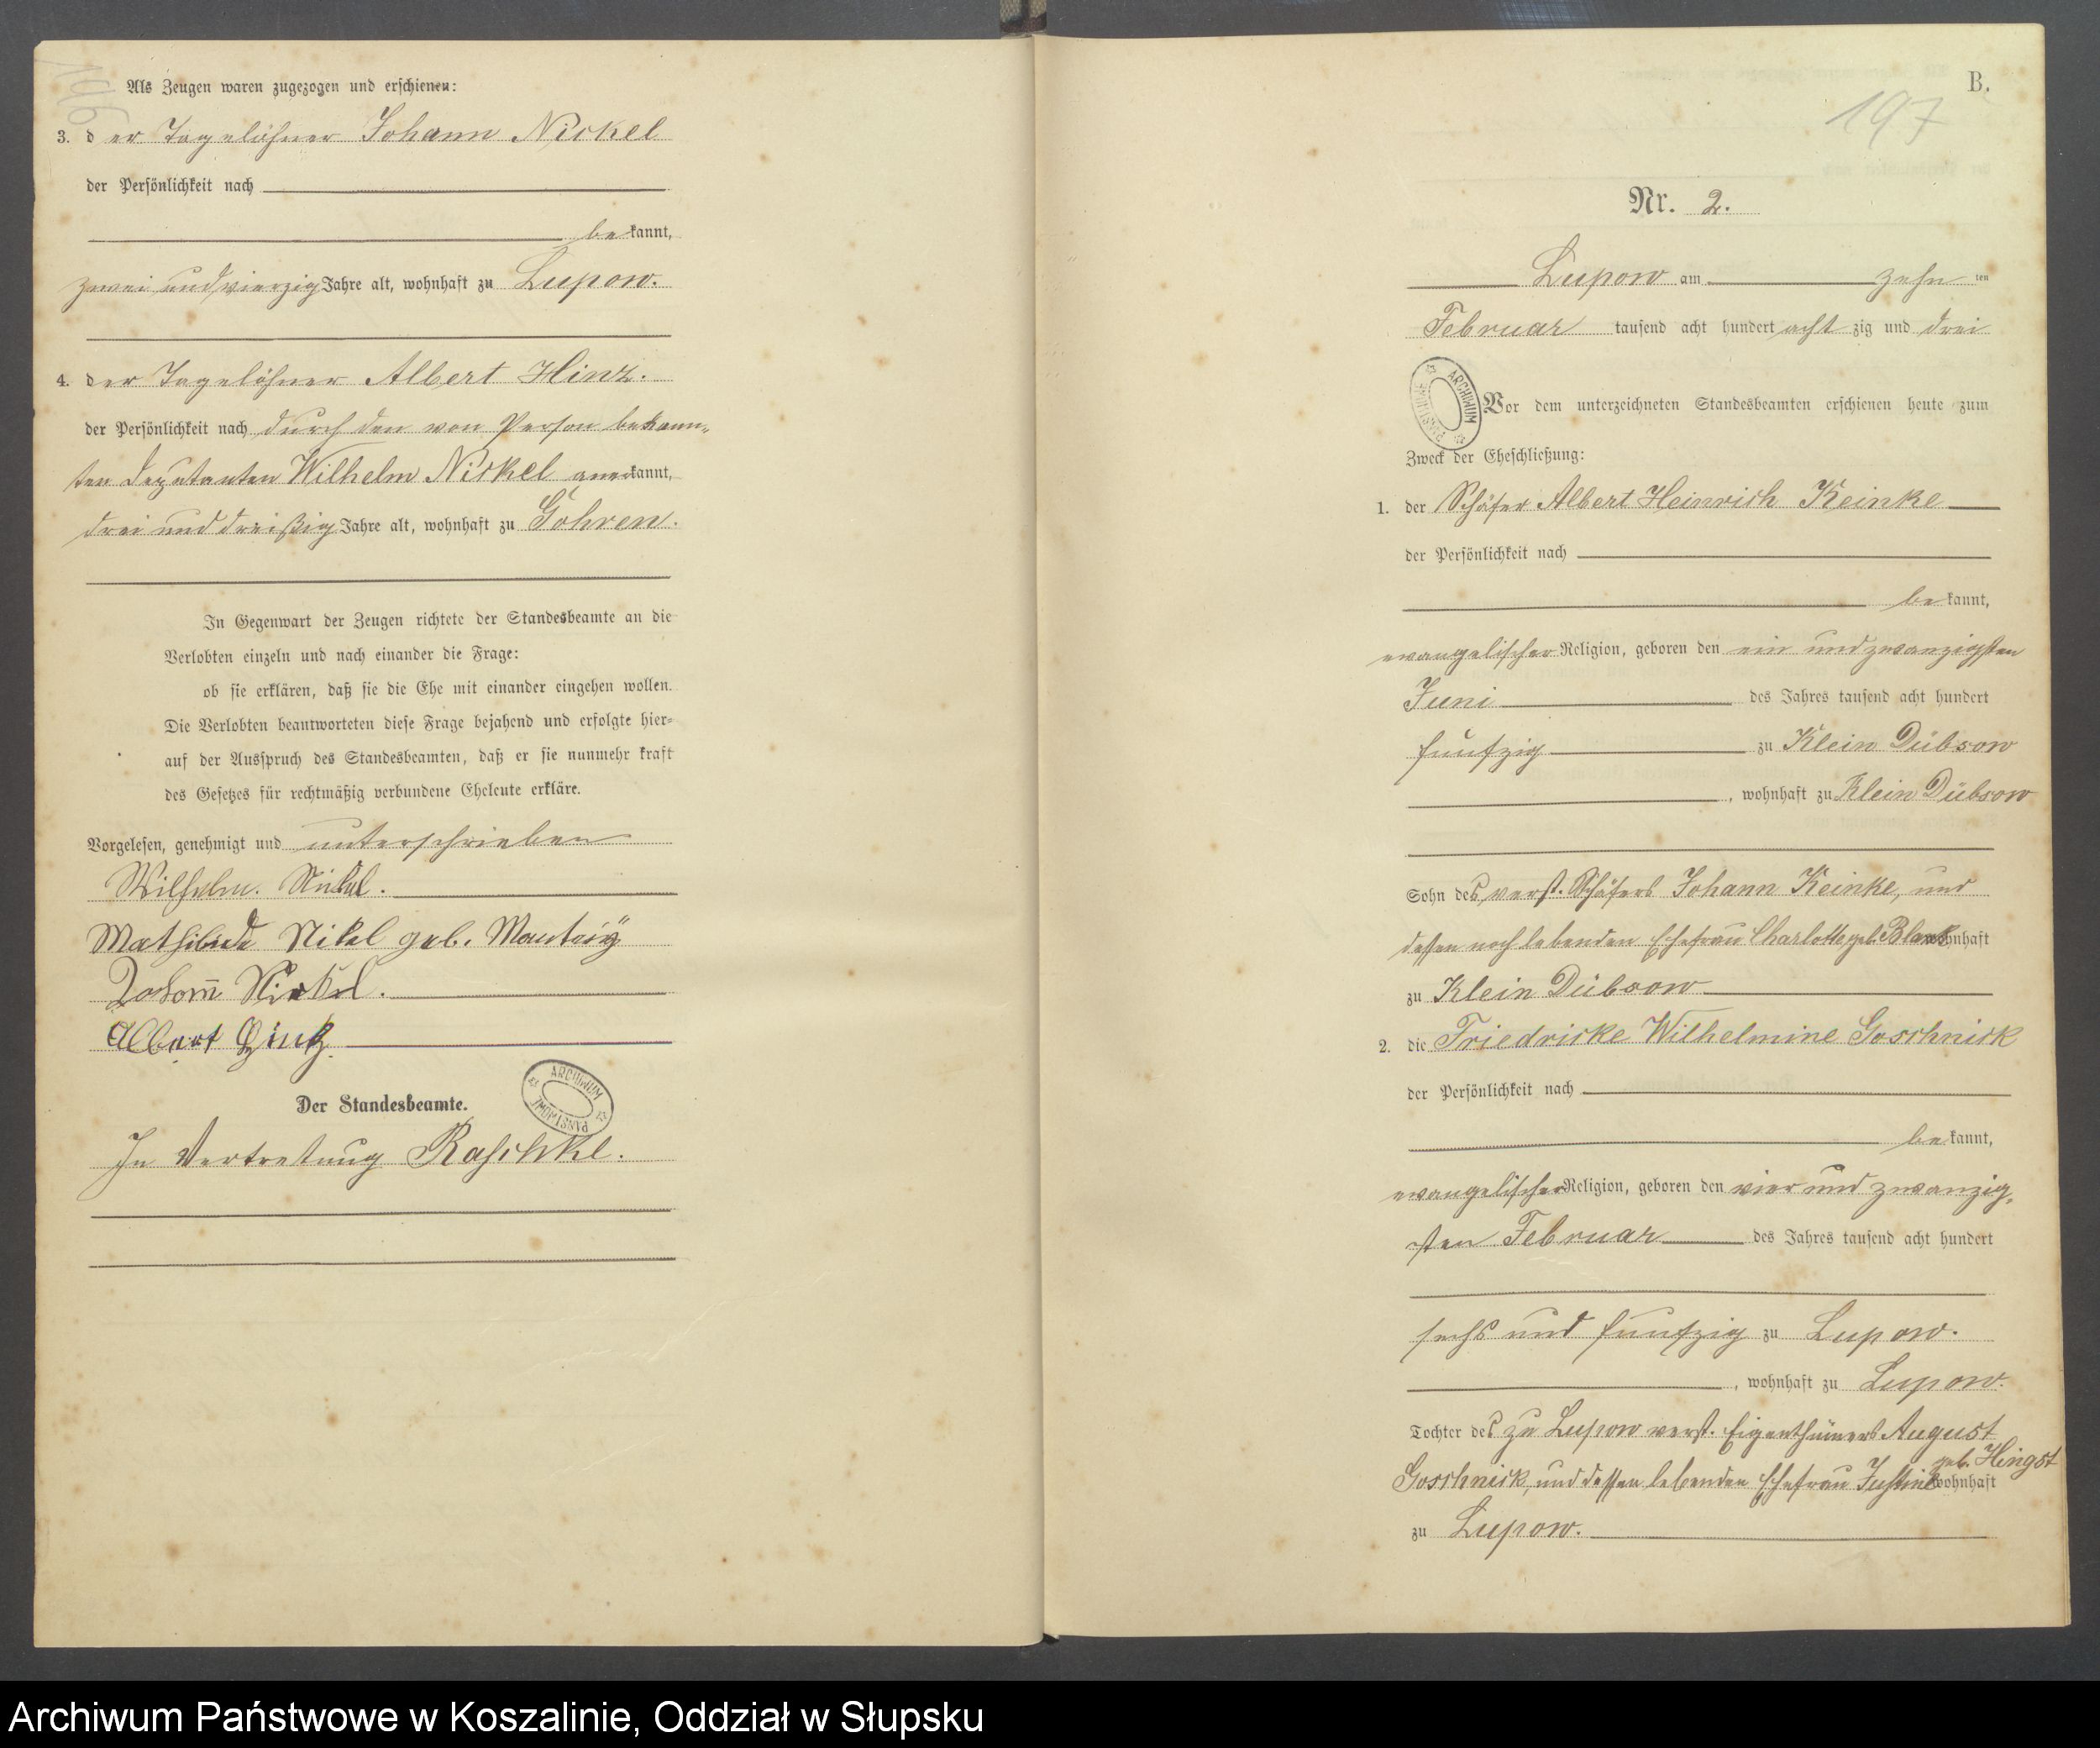 Als Zeugen waren zugezogen und erschienen:
3. der Tagelöhner Johann Nickel
der Persönlichkeit nach
bekannt,
zwei und vierzig Jahre alt, wohnhaft zu Lupow.
4. der Tagelöhner Albert Hinz.
der Persönlichkeit nach durch den von Person bekann-
ten Deputanten Wilhelm Nickel anerkannt,
drei und dreißig Jahre alt, wohnhaft zu Gohren.
In Gegenwart der Zeugen richtete der Standesbeamte an die
Verlobten einzeln und nach einander die Frage:
ob sie erklären, daß sie die Ehe mit einander eingehen wollen.
Die Verlobten beantworteten diese Frage bejahend und erfolgte hier-
auf der Ausspruch des Standesbeamten, daß er sie nunmehr kraft
des Gesetzes für rechtmäßig verbundene Eheleute erkläre.
Vorgelesen, genehmigt und unterschrieben
Wilhelm. Nickel.
Mathilde Nikel geb.
Johann Nickel.
Albert Hintz
Der Standesbeamte.
ARCHIWUM PAŃSTWOWE
In Vertretung Raschke.
B.
197
Nr. 2.
Lupow am zehn ten
Februar tausend acht hundert achtzig und drei
ARCHIWUM PAŃSTWOWE
Vor dem unterzeichneten Standesbeamten erschienen heute zum
Zweck der Eheschließung:
1. der Schäfer Albert Heinrich Keinke
der Persönlichkeit nach
bekannt,
evangelischer Religion, geboren den ein und zwanzigsten
Juni des Jahres tausend acht hundert
funfzig zu Klein Dübsow
, wohnhaft zu Klein Dübsow
Sohn des verst. Schäfers Johann Keinke, und
dessen noch lebenden Ehefrau Charlotte geb. Blank wohnhaft
zu Klein Dübsow
2. die Friedricke Wilhelmine Goschnick
der Persönlichkeit nach
bekannt,
evangelischer Religion, geboren den vier und zwanzig-
sten Februar des Jahres tausend acht hundert
sechs und funfzig zu Lupow.
, wohnhaft zu Lupow.
Tochter des zu Lupow verst. Eigenthümers August
Goschnick, und dessen lebenden Ehefrau Justine geb. Hingst wohnhaft
zu Lupow.
Archiwum Państwowe w Koszalinie, Oddział w Słupsku